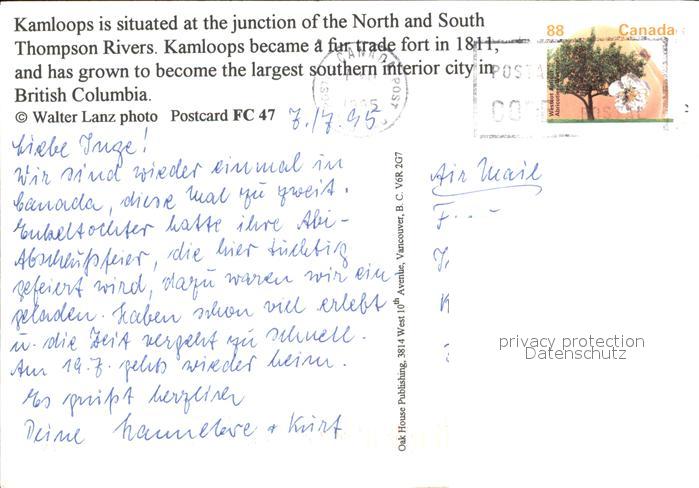 Kamloops is situated at the junction of the North and South
Thompson Rivers. Kamloops became a fur trade fort in 1811,
and has grown to become the largest southern interior city in
British Columbia.
© Walter Lanz photo Postcard FC 47
7./7.95
88 Canada
CANADA
POST
1995
POSTA
CO
Liebe Inge!
Wir sind wieder einmal in
Canada, diese Mal zu zweit.
Enkeltochter hatte ihre Abi-
Abschlußfeier, die hier tüchtig
gefeiert wird, dazu waren wir ein
geladen. Haben schon viel erlebt
u. die Zeit vergeht zu schnell.
Am 19.7. gehts wieder heim.
Es grüßt herzlich
Deine Hannelore + Kurt
Oak House Publishing, 3814 West 10th Avenue, Vancouver, B. C. V6R 2G7
Air Mail
F
privacy protection
Datenschutz